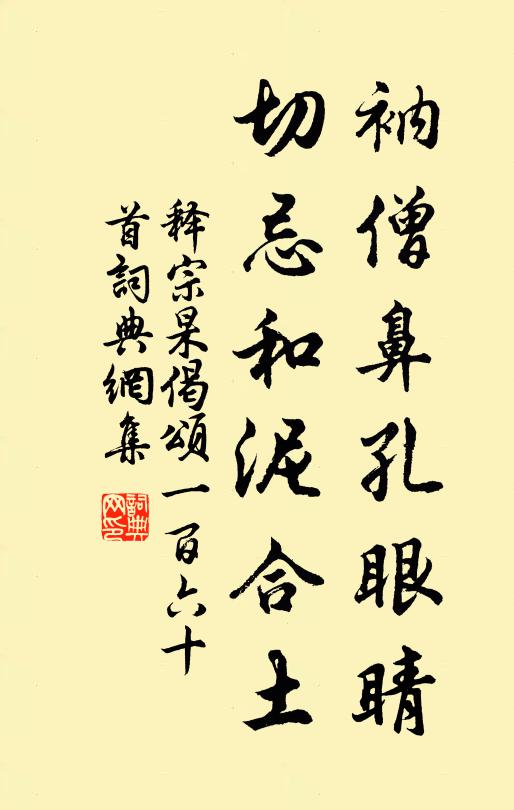 衲僧鼻孔眼睛
切忌和泥合土
释宗杲偈頌一百六十
首詞典網集
詞典網印